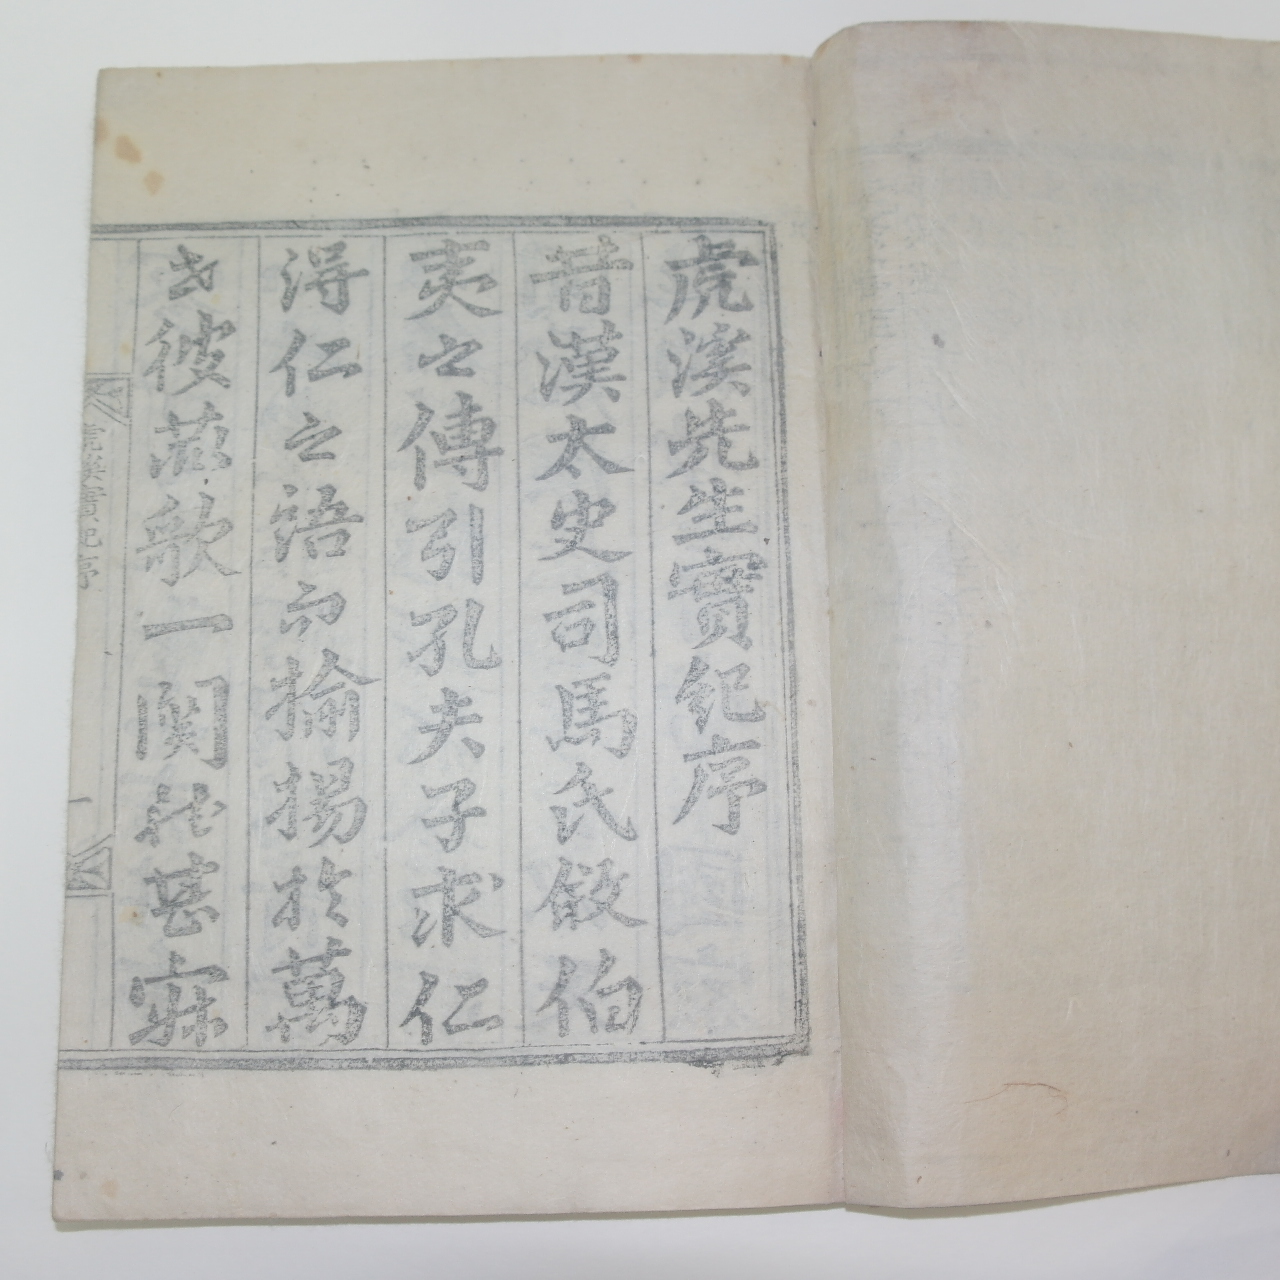 虎溪先生實紀序
昔漢太史司馬氏敘伯
夷之傳引孔夫子求仁
得仁之語而揄揚於萬
世彼歌一関甚
虎溪實紀序
一